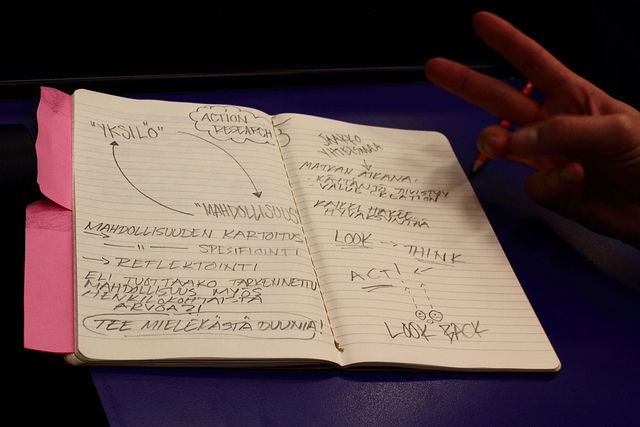 ACTION
RESEARCH
"YKSILÖ"
"MAHDOLLISUUS"
MAHDOLLISUUDEN KARTOITUS
— " — SPESIFIOINTI
→ REFLEKTOINTI
ELI TUOTTAAKO TARKENNETTU
MAHDOLLISUUS MYÖS
HENKILÖKOHTAISTA
ARVOA?!
TEE MIELEKÄSTÄ DUUNIA!
MATKAN AIKANA:
TIIVISTYY
VALUE CREATION
LOOK --> THINK
ACT!
LOOK BACK